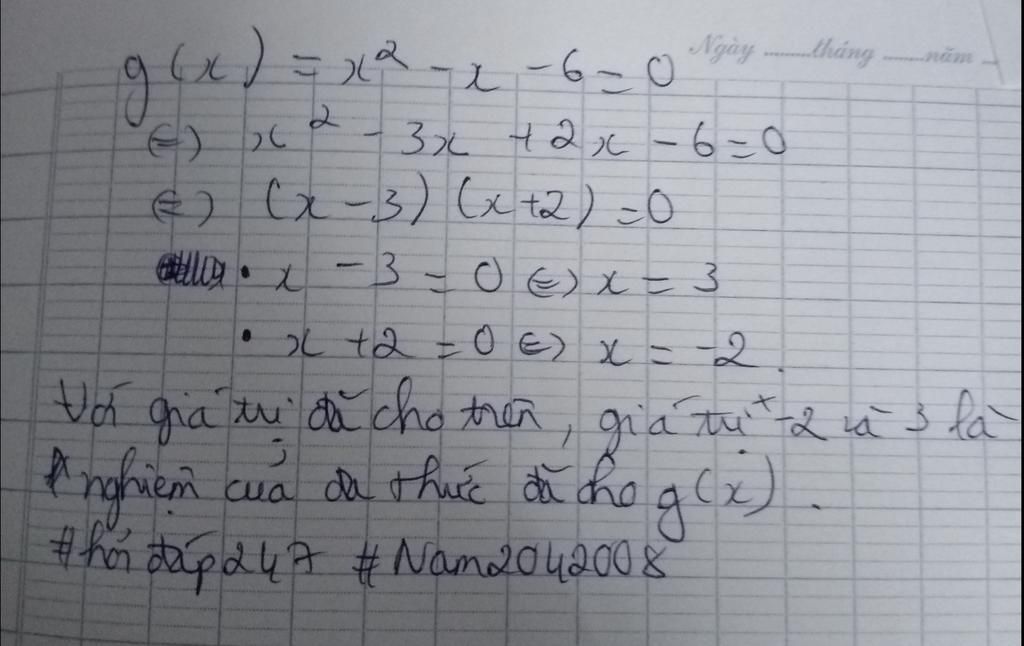 Ngày ........tháng .......năm
g(x) = x² - x - 6 = 0
⇔ x² - 3x + 2x - 6 = 0
⇔ (x - 3) (x + 2) = 0
• x - 3 = 0 ⇔ x = 3
• x + 2 = 0 ⇔ x = -2
Với giá trị đã cho trên, giá trị -2 và 3 là
nghiệm của đa thức đã cho g(x).
#hỏi đáp247 #Nam2042008